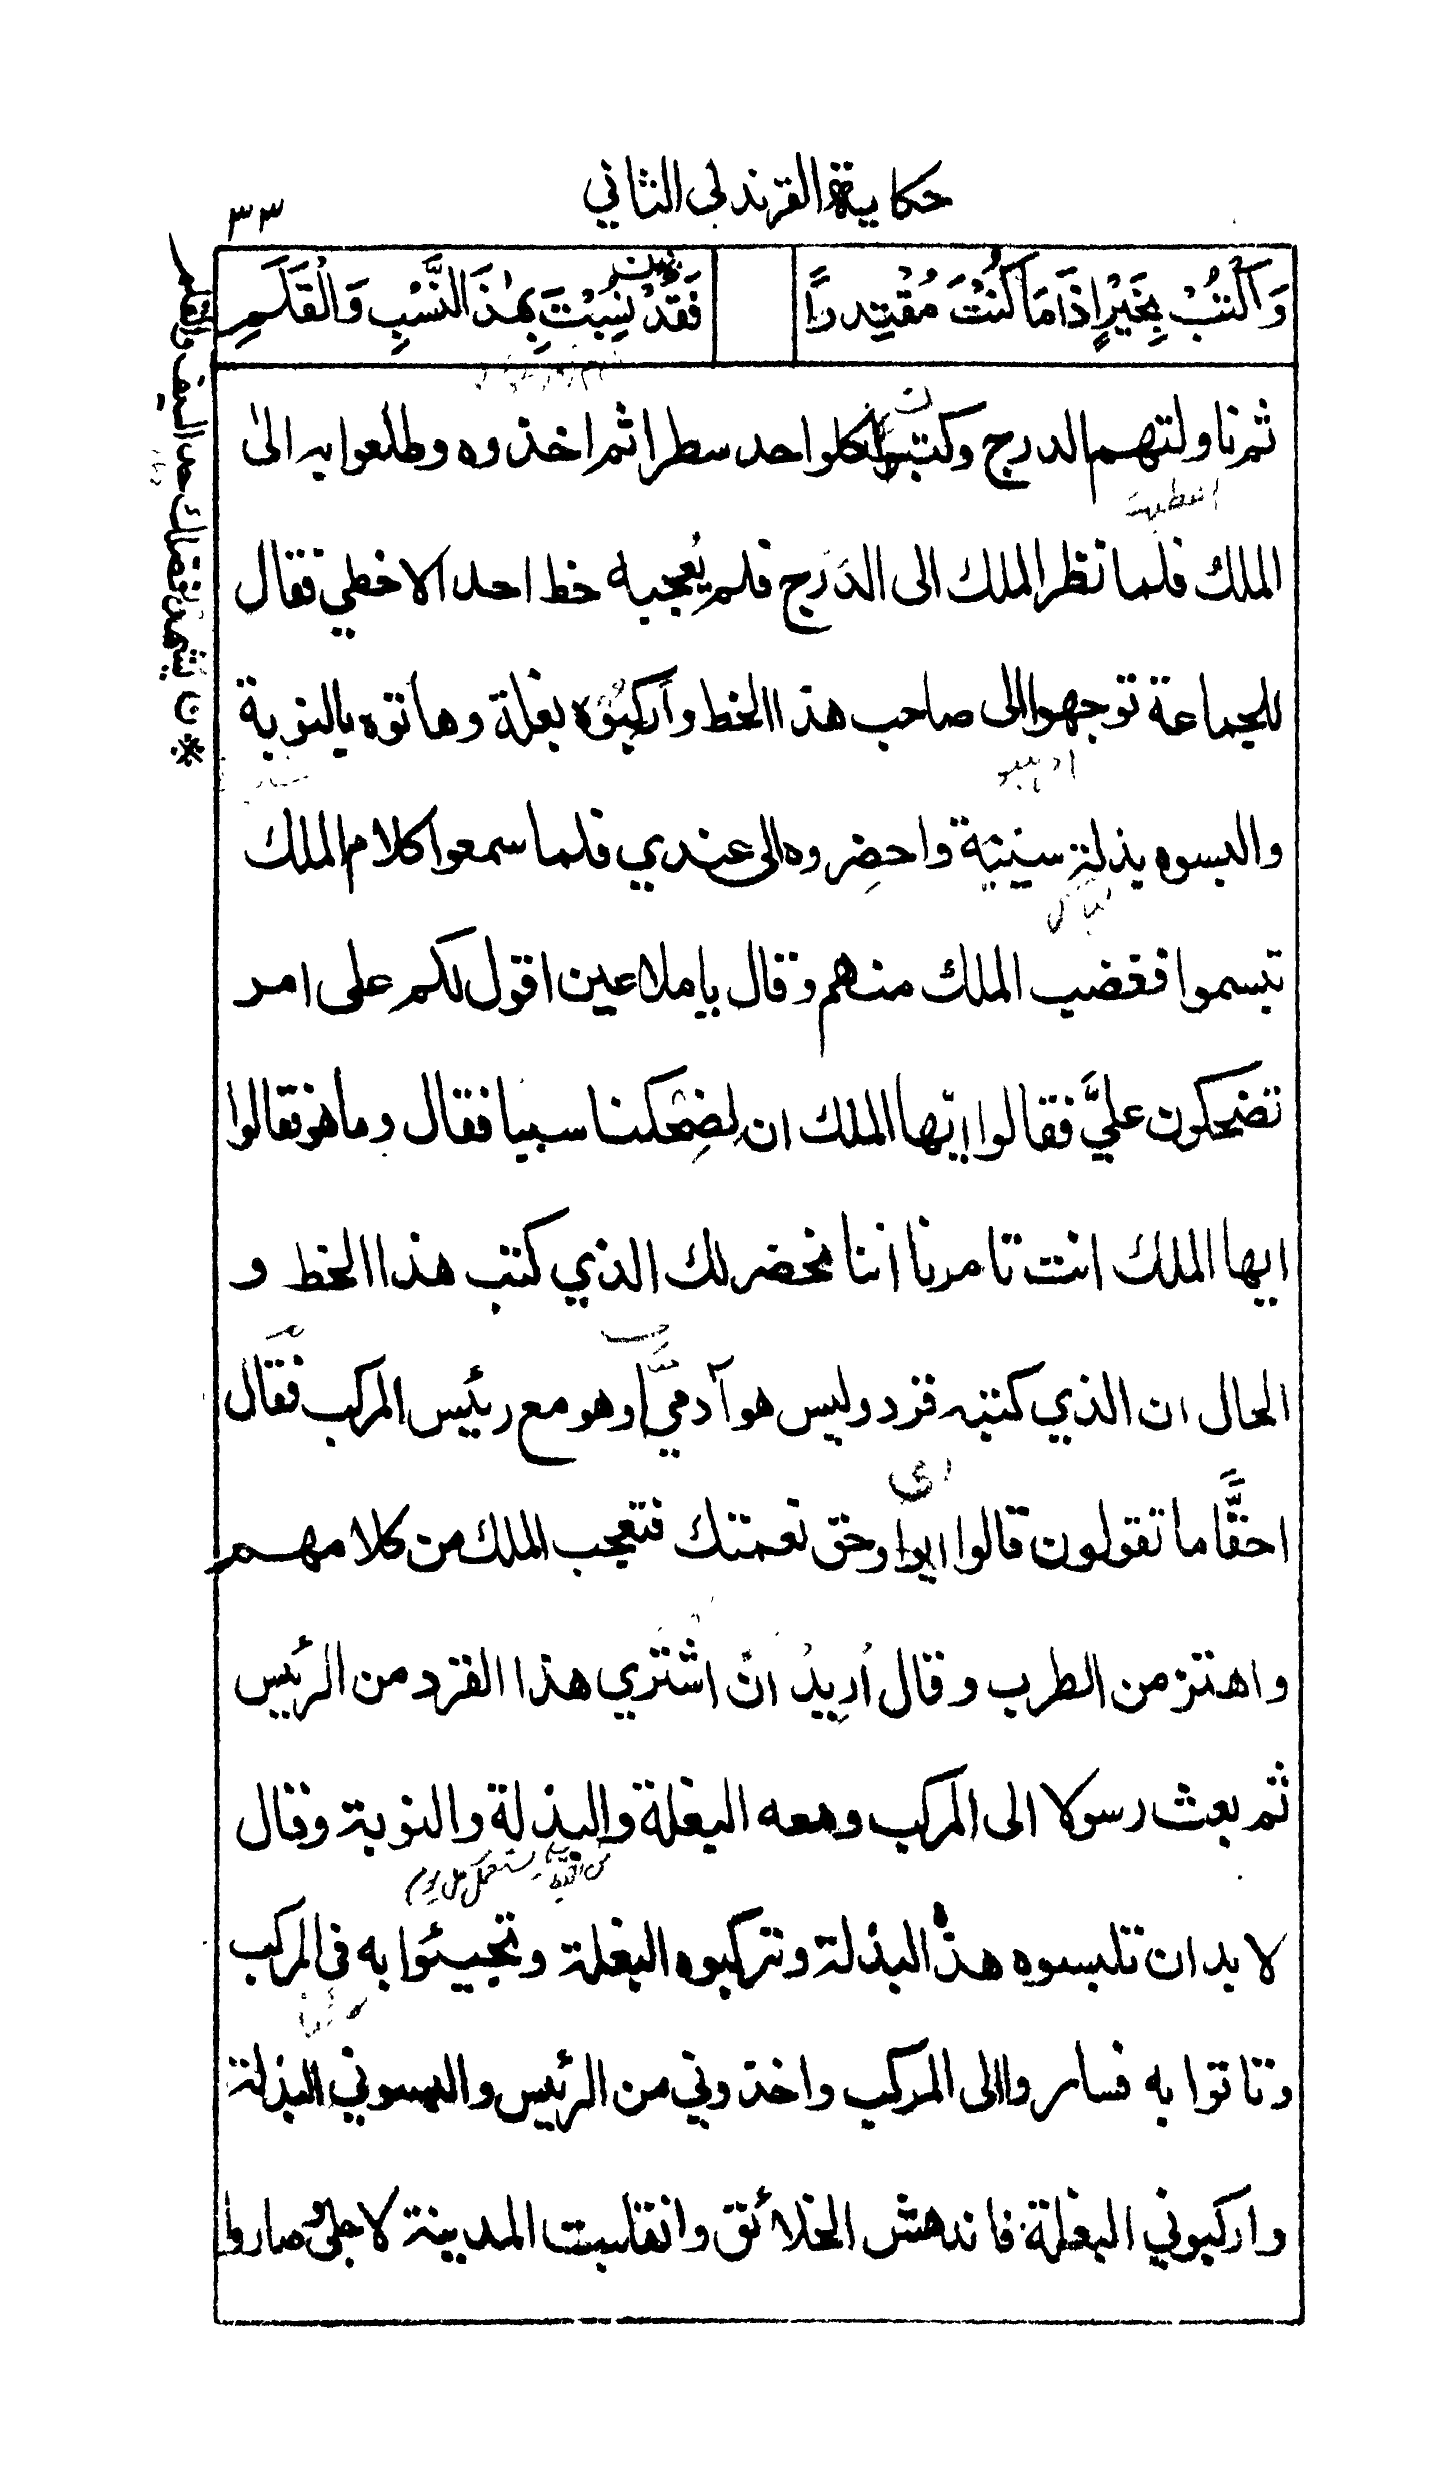 حكاية القرندلي الثاني
٣٣
وَاكْتُبْ بِخَيْرٍ إِذَا مَا كُنْتَ مُقْتِدرًا
فَقَدْ نِسِبْتَ بِهٰذَ النَّسْبِ وَالْقَلَمِ
ثم ناولتهم الدرج وكتبوا لكلواحد سطرا ثم اخذوه وطلعوا به الى
الملك فلما نظر الملك الى الدَرج فلم يُعجبه خط احد الا خطي فقال
للجماعة توجهوا الى صاحب هذا الخط واركبوه بغلة وهاتوه بالنوبة
والبسوه بذلة سينيّة واحضِروه الى عندي فلما سمعوا كلام الملك
تبسموا فغضب الملك منهم وقال يا ملاعين اقول لكم على امر
تضحكون عليَّ فقالوا ايّها الملك ان لِضِحْكنا سببا فقال وما هو فقالوا
ايها الملك انت تامرنا اننا نحضر لك الذي كتب هذا الخط و
الحال ان الذي كتبه قرد وليس هو آدميًّا وهو مع رئيس المركب فقال
احقًّا ما تقولون قالوا ايوا وحق نعمتك فتعجب الملك من كلامهم
واهتز من الطرب وقال اُرِيدُ ان اشتري هذا القرد من الرئيس
ثم بعث رسولا الى المركب ومعه البغلة والبذلة والنوبة وقال
لا بد ان تلبسوه هذه البذلة وتركبوه البغلة وتجيئوا به في المركب
وتاتوا به فساروا الى المركب واخذوني من الرئيس والبسوني البذلة
واركبوني البغلة فاندهش الخلائق وانقلبت المدينة لاجلي وصاروا